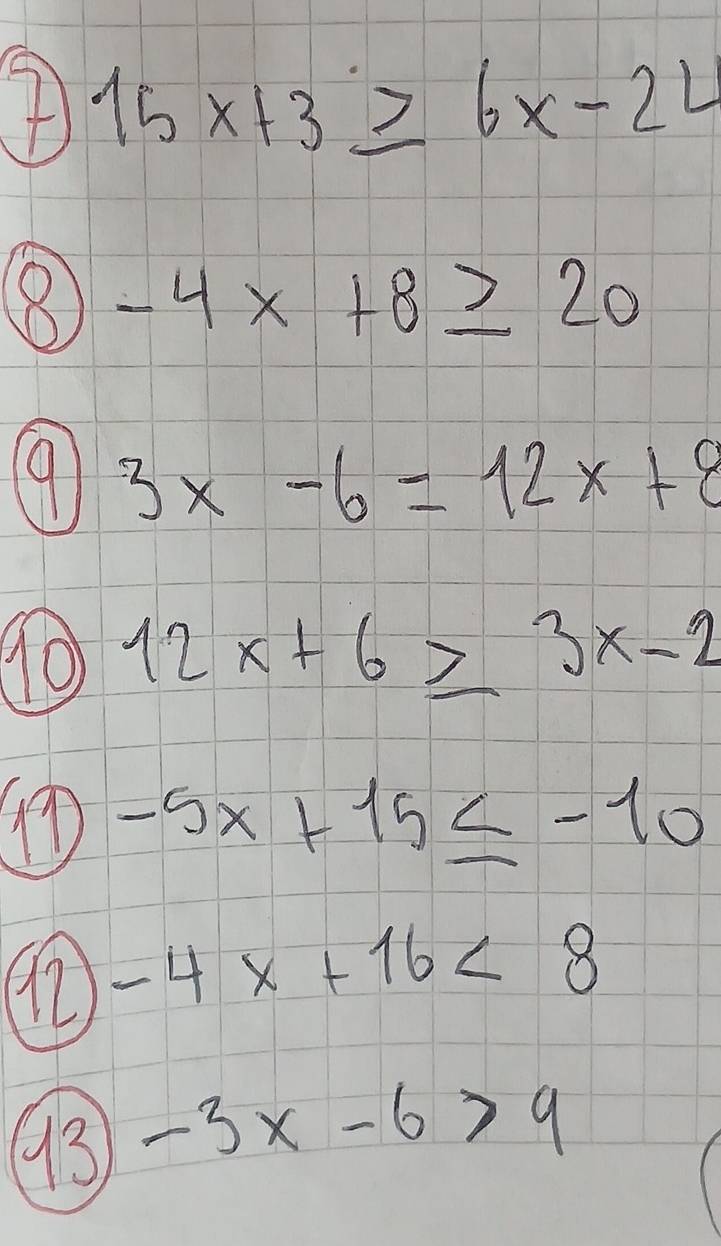 ⑦ 15x+3 ≥ 6x-24
⑧ -4x +8 ≥ 20
⑨ 3x -6 = 12x+8
⑩ 12x+6 ≥ 3x-2
⑪ -5x+15 ≤ -10
⑫ -4x+16 < 8
⑬ -3x-6 > 9